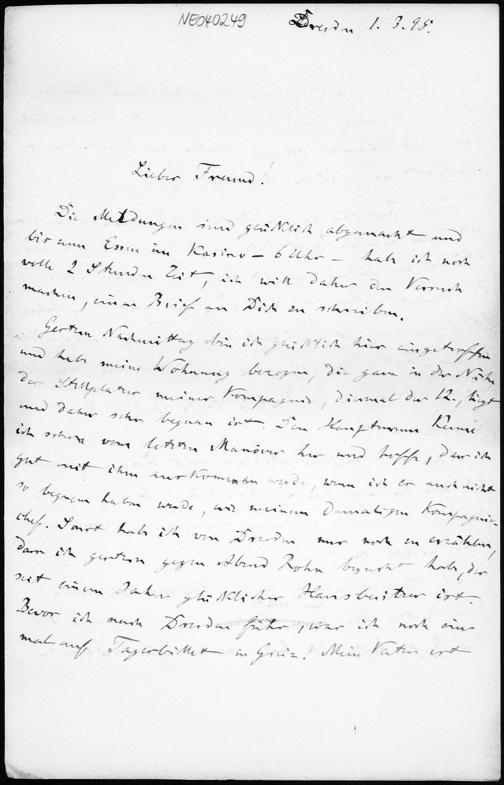 NE040249
Dresden 1. 3. 95.
Lieber Freund!
Die Meldungen sind glücklich abgemacht und
bis zum Essen im Kasino – 6 Uhr – hab ich noch
volle 2 Stunden Zeit, ich will daher den Versuch
machen, einen Brief an Dich zu schreiben.
Gestern Nachmittag bin ich glücklich hier eingetroffen
und habe meine Wohnung bezogen, die ganz in der Nähe
des Stellplatzes meiner Kompagnie, diesmal der 12., liegt
und daher sehr bequem ist. Den Hauptmann kenne
ich schon vom letzten Manöver her und hoffe, dass ich
gut mit ihm auskommen werde, wenn ich es auch nicht
so bequem haben werde, wie meinem damaligen Kompagnie-
chef. Sonst hab ich von Dresden nur noch zu erzählen,
dass ich gestern gegen Abend Rohn besucht habe, der
seit einem Jahre glücklicher Hausbesitzer ist.
Bevor ich nach Dresden fuhr, war ich noch ein-
mal auf Tagesbillet in Greiz! Mein Vater ist